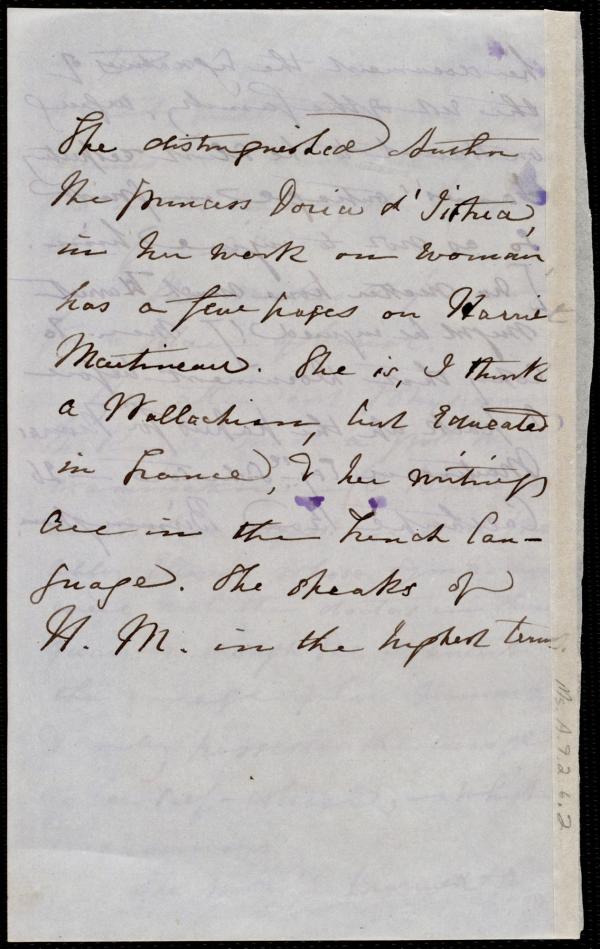 The distinguished Author
the Princess Doria d'Istria,
in her work on woman,
has a few pages on Harriet
Martineau. She is, I think
a Wallachian, but Educated
in France, & her writings
are in the French Lan-
guage. She speaks of
H. M. in the highest terms.
Ms. A. 9. 2. 6. 2